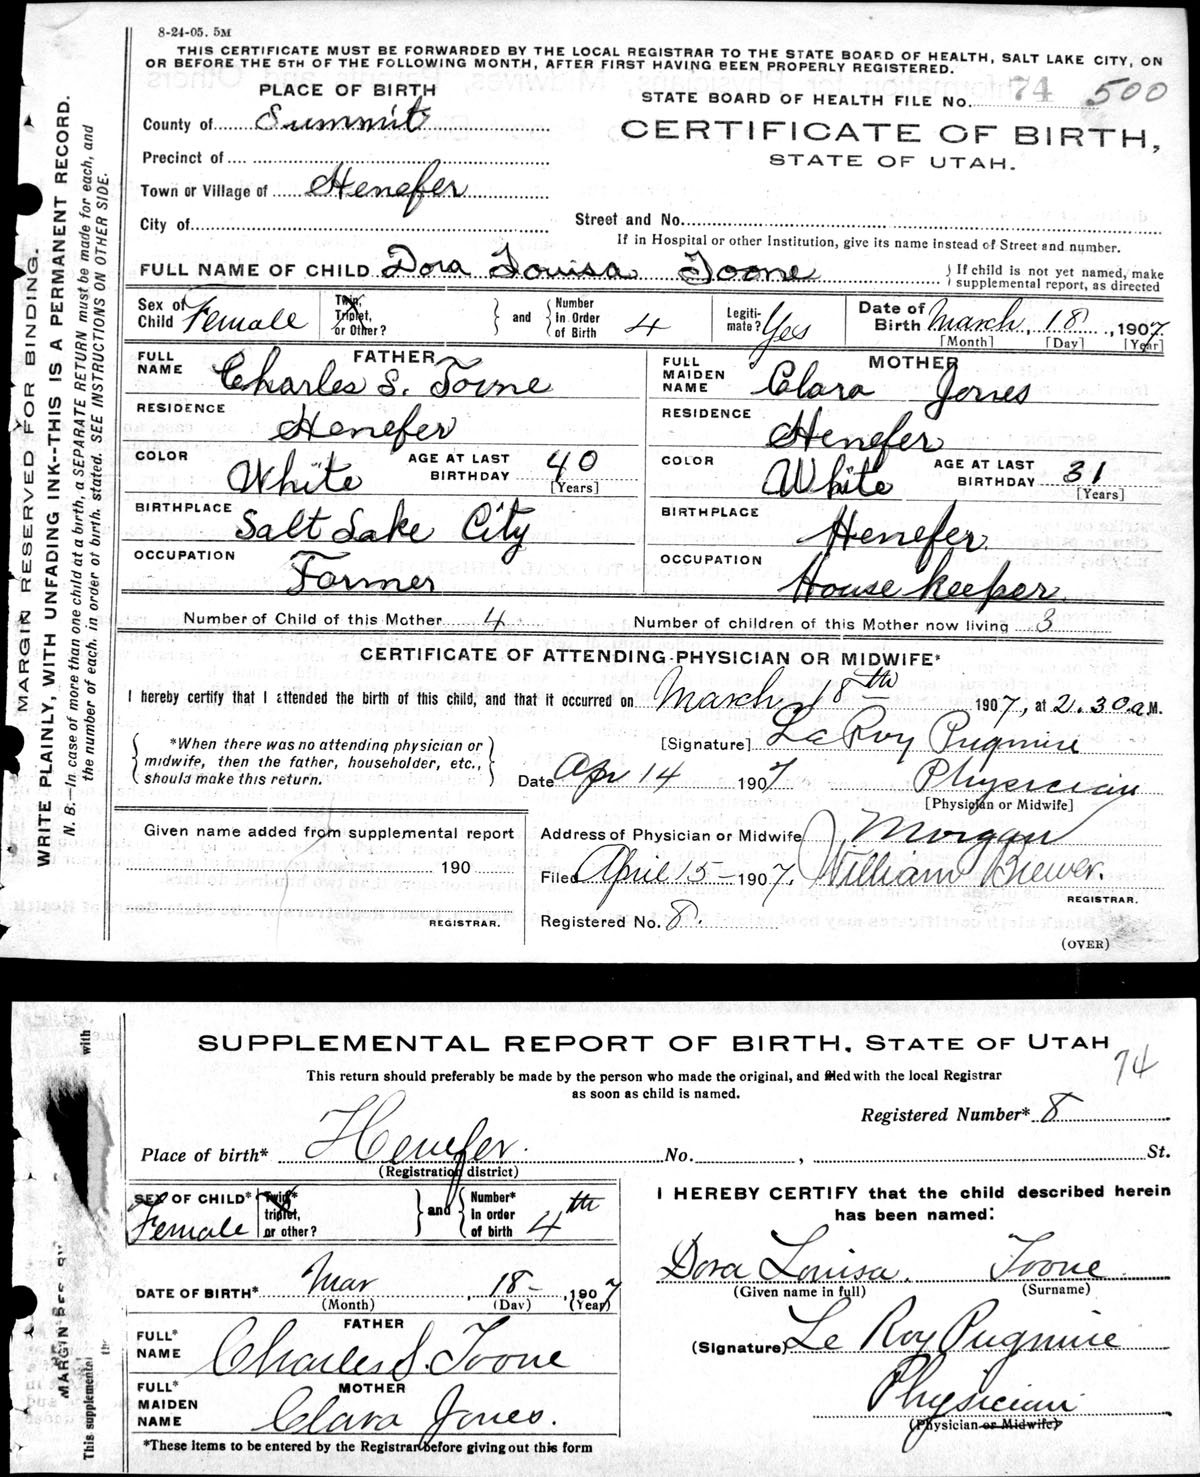 8-24-05. 5M
THIS CERTIFICATE MUST BE FORWARDED BY THE LOCAL REGISTRAR TO THE STATE BOARD OF HEALTH, SALT LAKE CITY, ON
OR BEFORE THE 5TH OF THE FOLLOWING MONTH, AFTER FIRST HAVING BEEN PROPERLY REGISTERED.
PLACE OF BIRTH
STATE BOARD OF HEALTH FILE No. 74 500
County of Summit
CERTIFICATE OF BIRTH,
STATE OF UTAH.
Precinct of
Town or Village of Henefer
City of
Street and No.
If in Hospital or other Institution, give its name instead of Street and number.
FULL NAME OF CHILD Dora Louisa Toone } If child is not yet named, make
supplemental report, as directed
Sex of Child Female Twin, Triplet, or Other? } and { Number in Order of Birth 4 Legiti-mate? Yes Date of Birth March, 18, 1907
[Month] [Day] [Year]
FATHER
MOTHER
FULL NAME Charles S. Toone
FULL MAIDEN NAME Clara Jones
RESIDENCE Henefer
RESIDENCE Henefer
COLOR White AGE AT LAST BIRTHDAY 40 [Years]
COLOR White AGE AT LAST BIRTHDAY 31 [Years]
BIRTHPLACE Salt Lake City
BIRTHPLACE Henefer.
OCCUPATION Farmer
OCCUPATION House keeper.
Number of Child of this Mother 4 Number of children of this Mother now living 3
CERTIFICATE OF ATTENDING PHYSICIAN OR MIDWIFE*
I hereby certify that I attended the birth of this child, and that it occurred on March 18th 1907, at 2.30 a.M.
*When there was no attending physician or
midwife, then the father, householder, etc.,
should make this return.
[Signature] La Roy Pugmire
Date Apr 14 1907 Physician
[Physician or Midwife]
Given name added from supplemental report
190
REGISTRAR.
Address of Physician or Midwife Morgan
Filed April 15- 1907. William Brewer.
REGISTRAR.
Registered No. 8
(OVER)
MARGIN RESERVED FOR BINDING.
WRITE PLAINLY, WITH UNFADING INK--THIS IS A PERMANENT RECORD.
N. B.—In case of more than one child at a birth, a SEPARATE RETURN must be made for each, and
the number of each, in order of birth, stated. SEE INSTRUCTIONS ON OTHER SIDE.
SUPPLEMENTAL REPORT OF BIRTH, STATE OF UTAH
74
This return should preferably be made by the person who made the original, and filed with the local Registrar
as soon as child is named.
Registered Number* 8
Place of birth* Henefer. No. , St.
(Registration district)
SEX OF CHILD* Female Twin* triplet, or other? } and { Number* In order of birth 4th
I HEREBY CERTIFY that the child described herein
has been named:
Dora Louisa. Toone
(Given name in full) (Surname)
DATE OF BIRTH* Mar, 18-, 1907
(Month) (Day) (Year)
FATHER
FULL* NAME Charles S. Toone
(Signature) Le Roy Pugmire
MOTHER
FULL* MAIDEN NAME Clara Jones.
Physician
(Physician or Midwife)
*These items to be entered by the Registrar before giving out this form
This supplemental
with